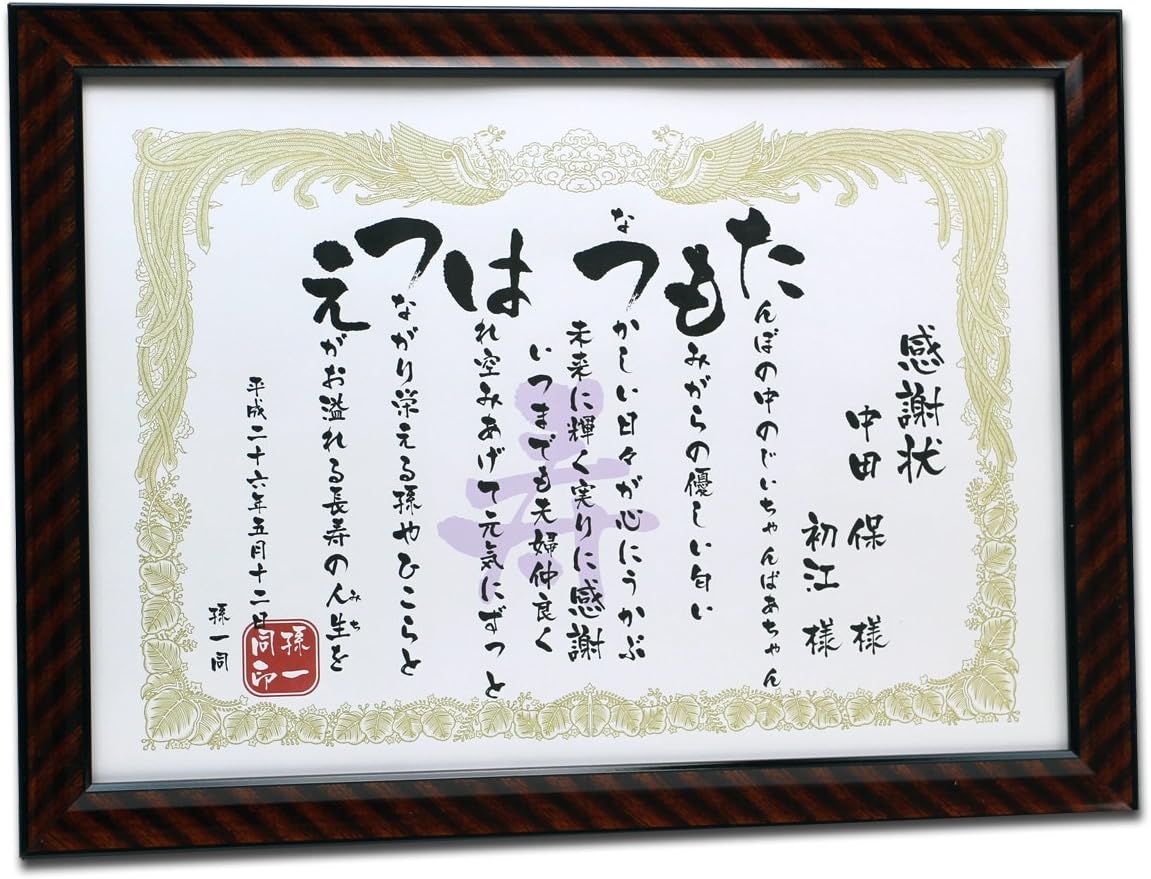 感謝状
中田 保 様
初江 様
たんぼの中のじいちゃんばあちゃん
もみがらの優しい匂い
なつかしい日々が心にうかぶ
未来に輝く実りに感謝
いつまでも夫婦仲良く
はれ空みあげて元気にずっと
つながり栄える孫やひこらと
えがお溢れる長寿の人生を
みち
平成二十六年五月十二日
孫一同
孫一
同印
寿